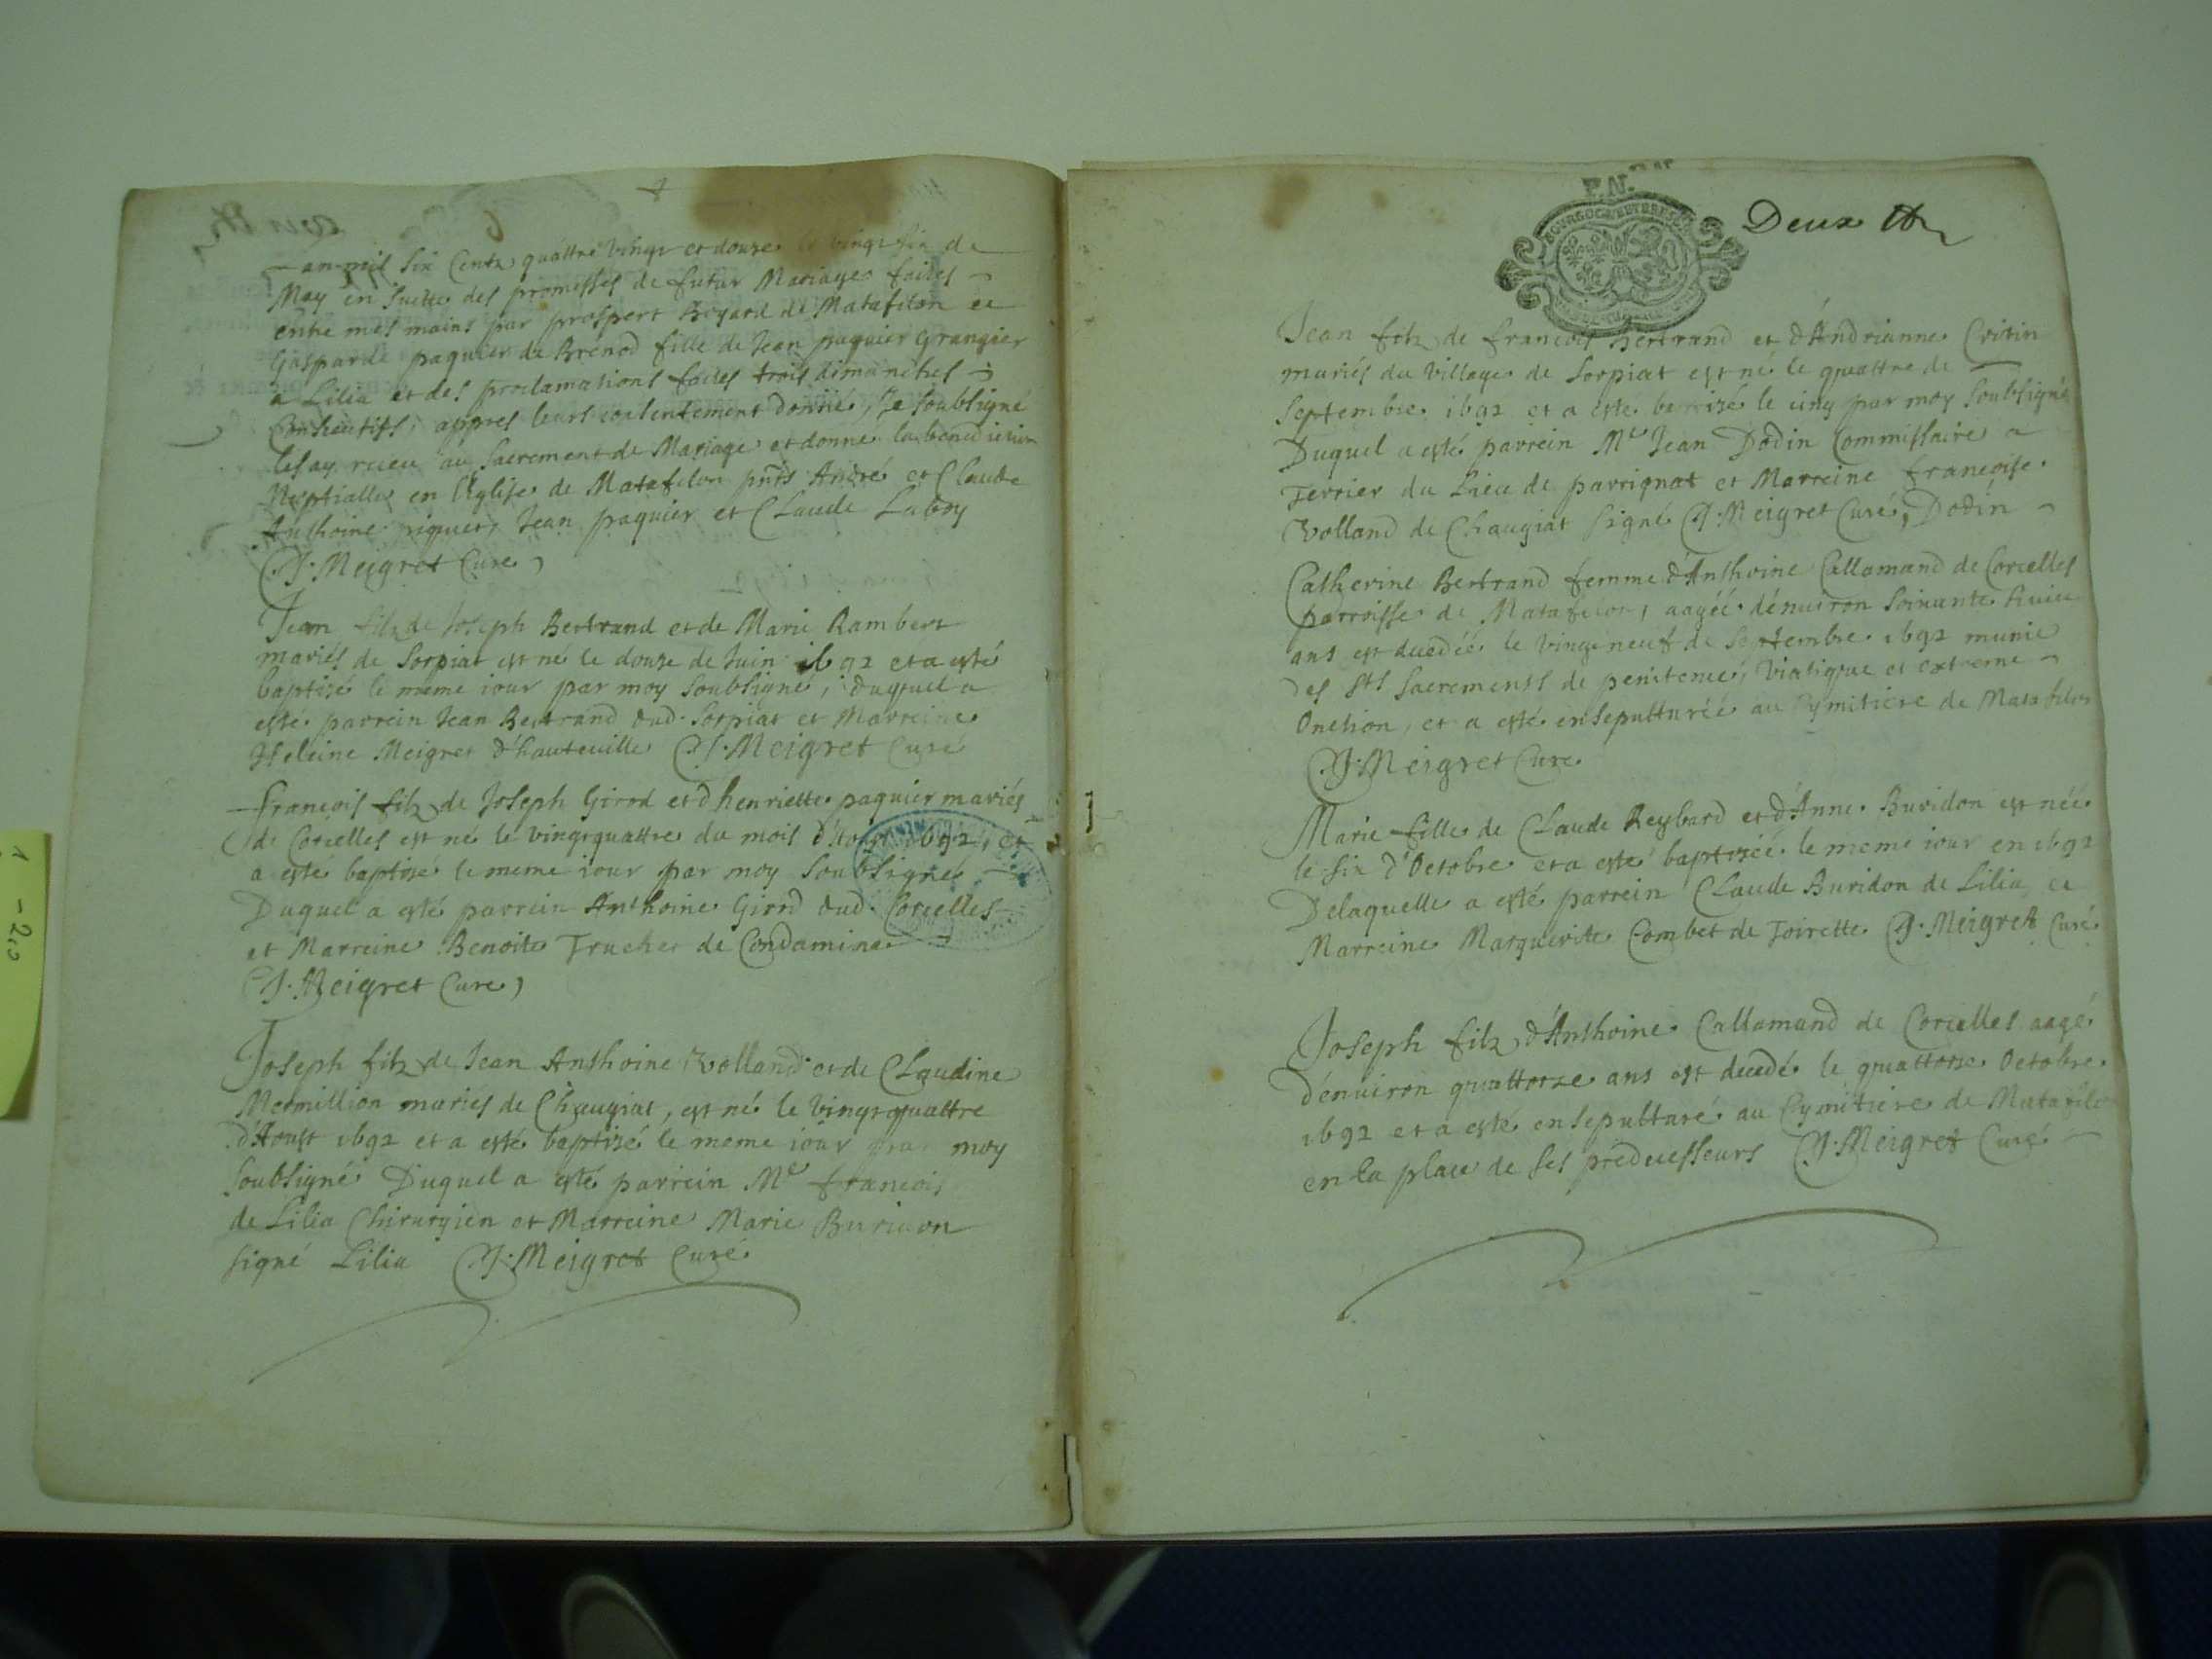 an mil six Centz quattre vingt et douze le vingt six de
May en suette des promesses de futur Mariage faites
entre mes mains par prospert Boyard de Matafelon et
Gasparde paquier de Brénod fille de Jean paquier Grangier
a Lilia et des proclamations faites trois dimanches
Consecutifs, appres leurs consentement donné, Je soubsigné
les ay receu au Sacrement de Mariage et donné la benediction
Nuptialle en l'Eglise de Matafelon pnts André et Claude
Anthoine riquet, Jean paquier et Claude Laboy
J. Meigret Curé
Jean filz de Joseph Bertrand et de Marie Rambert
mariés de Sorpiat est né le douze de Juin 1692 et a esté
baptizé le meme iour par moy soubsigné, duquel a
esté parrein Jean Bertrand dud. Sorpiat et Marreine
Heleine Meigret d'hauteuille J. Meigret Curé
francois filz de Joseph Girod et d'henriette paquier mariés
de Corcelles est né le vingt quattre du mois d'Aoust 1692, et
a esté baptizé le meme iour par moy soubsigné
Duquel a esté parrein Anthoine Girod dud. Corcelles
et Marreine Benoite Truchet de Condamine
J. Meigret Curé
Joseph filz de Jean Anthoine Volland et de Claudine
Mermillion mariés de Chaugiat, est né le vingt quattre
d'Aoust 1692 et a esté baptizé le meme iour par moy
soubsigné Duquel a esté parrein Me francois
de Lilia Chirurgien et Marreine Marie Buridon
signé Lilia J. Meigret Curé
BOURGOG ET BRES
Deux
Jean filz de francois Bertrand et d'Andrianne Critin
mariés du village de Sorpiat est né le quattre de
Septembre 1692 et a esté batizé le cinq par moy soubsigné
Duquel a esté parrein Me Jean Dodin Commissaire a
Terrier du Lieu de parrignat et Marreine francoise
Volland de Chaugiat signé J. Meigret Curé, Dodin
Catherine Bertrand femme d'Anthoine Callamand de Corcelles
parroisse de Matafelon, aagéé d'enuiron soixante huict
ans est decedéé le vingt neuf de Septembre 1692 munie
des Sts Sacrements de penitence, viatique et extreme
Onction, et a esté ensepulturéé au Cymitiere de Matafelon
J. Meigret Curé
Marie fille de Claude Reybard et d'Anne Buridon est néé
le six d'Octobre et a esté baptizéé le meme iour en 1692
Delaquelle a esté parrein Claude Buridon de Lilia et
Marreine Marguerite Combet de Toirette J. Meigret Curé
Joseph filz d'Anthoine Callamand de Corcelles aagé
d'enuiron quattorze ans est decedé le quattorze Octobre
1692 et a esté ensepulturé au Cymitiere de Matafelon
en la place de ses predecesseurs J. Meigret Curé